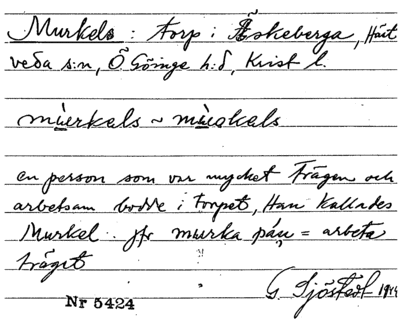 Murkels: torp i Äskeberga, Härt
veda s:n, Ö Göinge h:d, Krist l.
mùerkals ~ mùɛskals
en person som var mycket trägen och
arbetsam bodde i torpet, Han kallades
Murkel. jfr murka pán = arbeta
träget
G. Sjöstedt 1914
Nr 5424